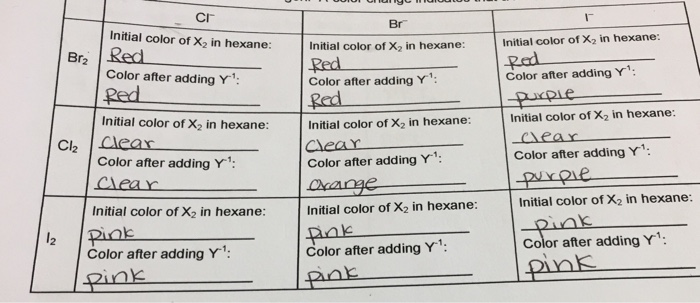 color change indicates that
Cl⁻
Br
I⁻
Br₂
Initial color of X₂ in hexane:
Red
Color after adding Y⁻¹:
Red
Initial color of X₂ in hexane:
Red
Color after adding Y⁻¹:
Red
Initial color of X₂ in hexane:
Red
Color after adding Y⁻¹:
purple
Cl₂
Initial color of X₂ in hexane:
Clear
Color after adding Y⁻¹:
Clear
Initial color of X₂ in hexane:
Clear
Color after adding Y⁻¹:
Orange
Initial color of X₂ in hexane:
Clear
Color after adding Y⁻¹:
purple
I₂
Initial color of X₂ in hexane:
Pink
Color after adding Y⁻¹:
pink
Initial color of X₂ in hexane:
pink
Color after adding Y⁻¹:
pink
Initial color of X₂ in hexane:
pink
Color after adding Y⁻¹:
pink